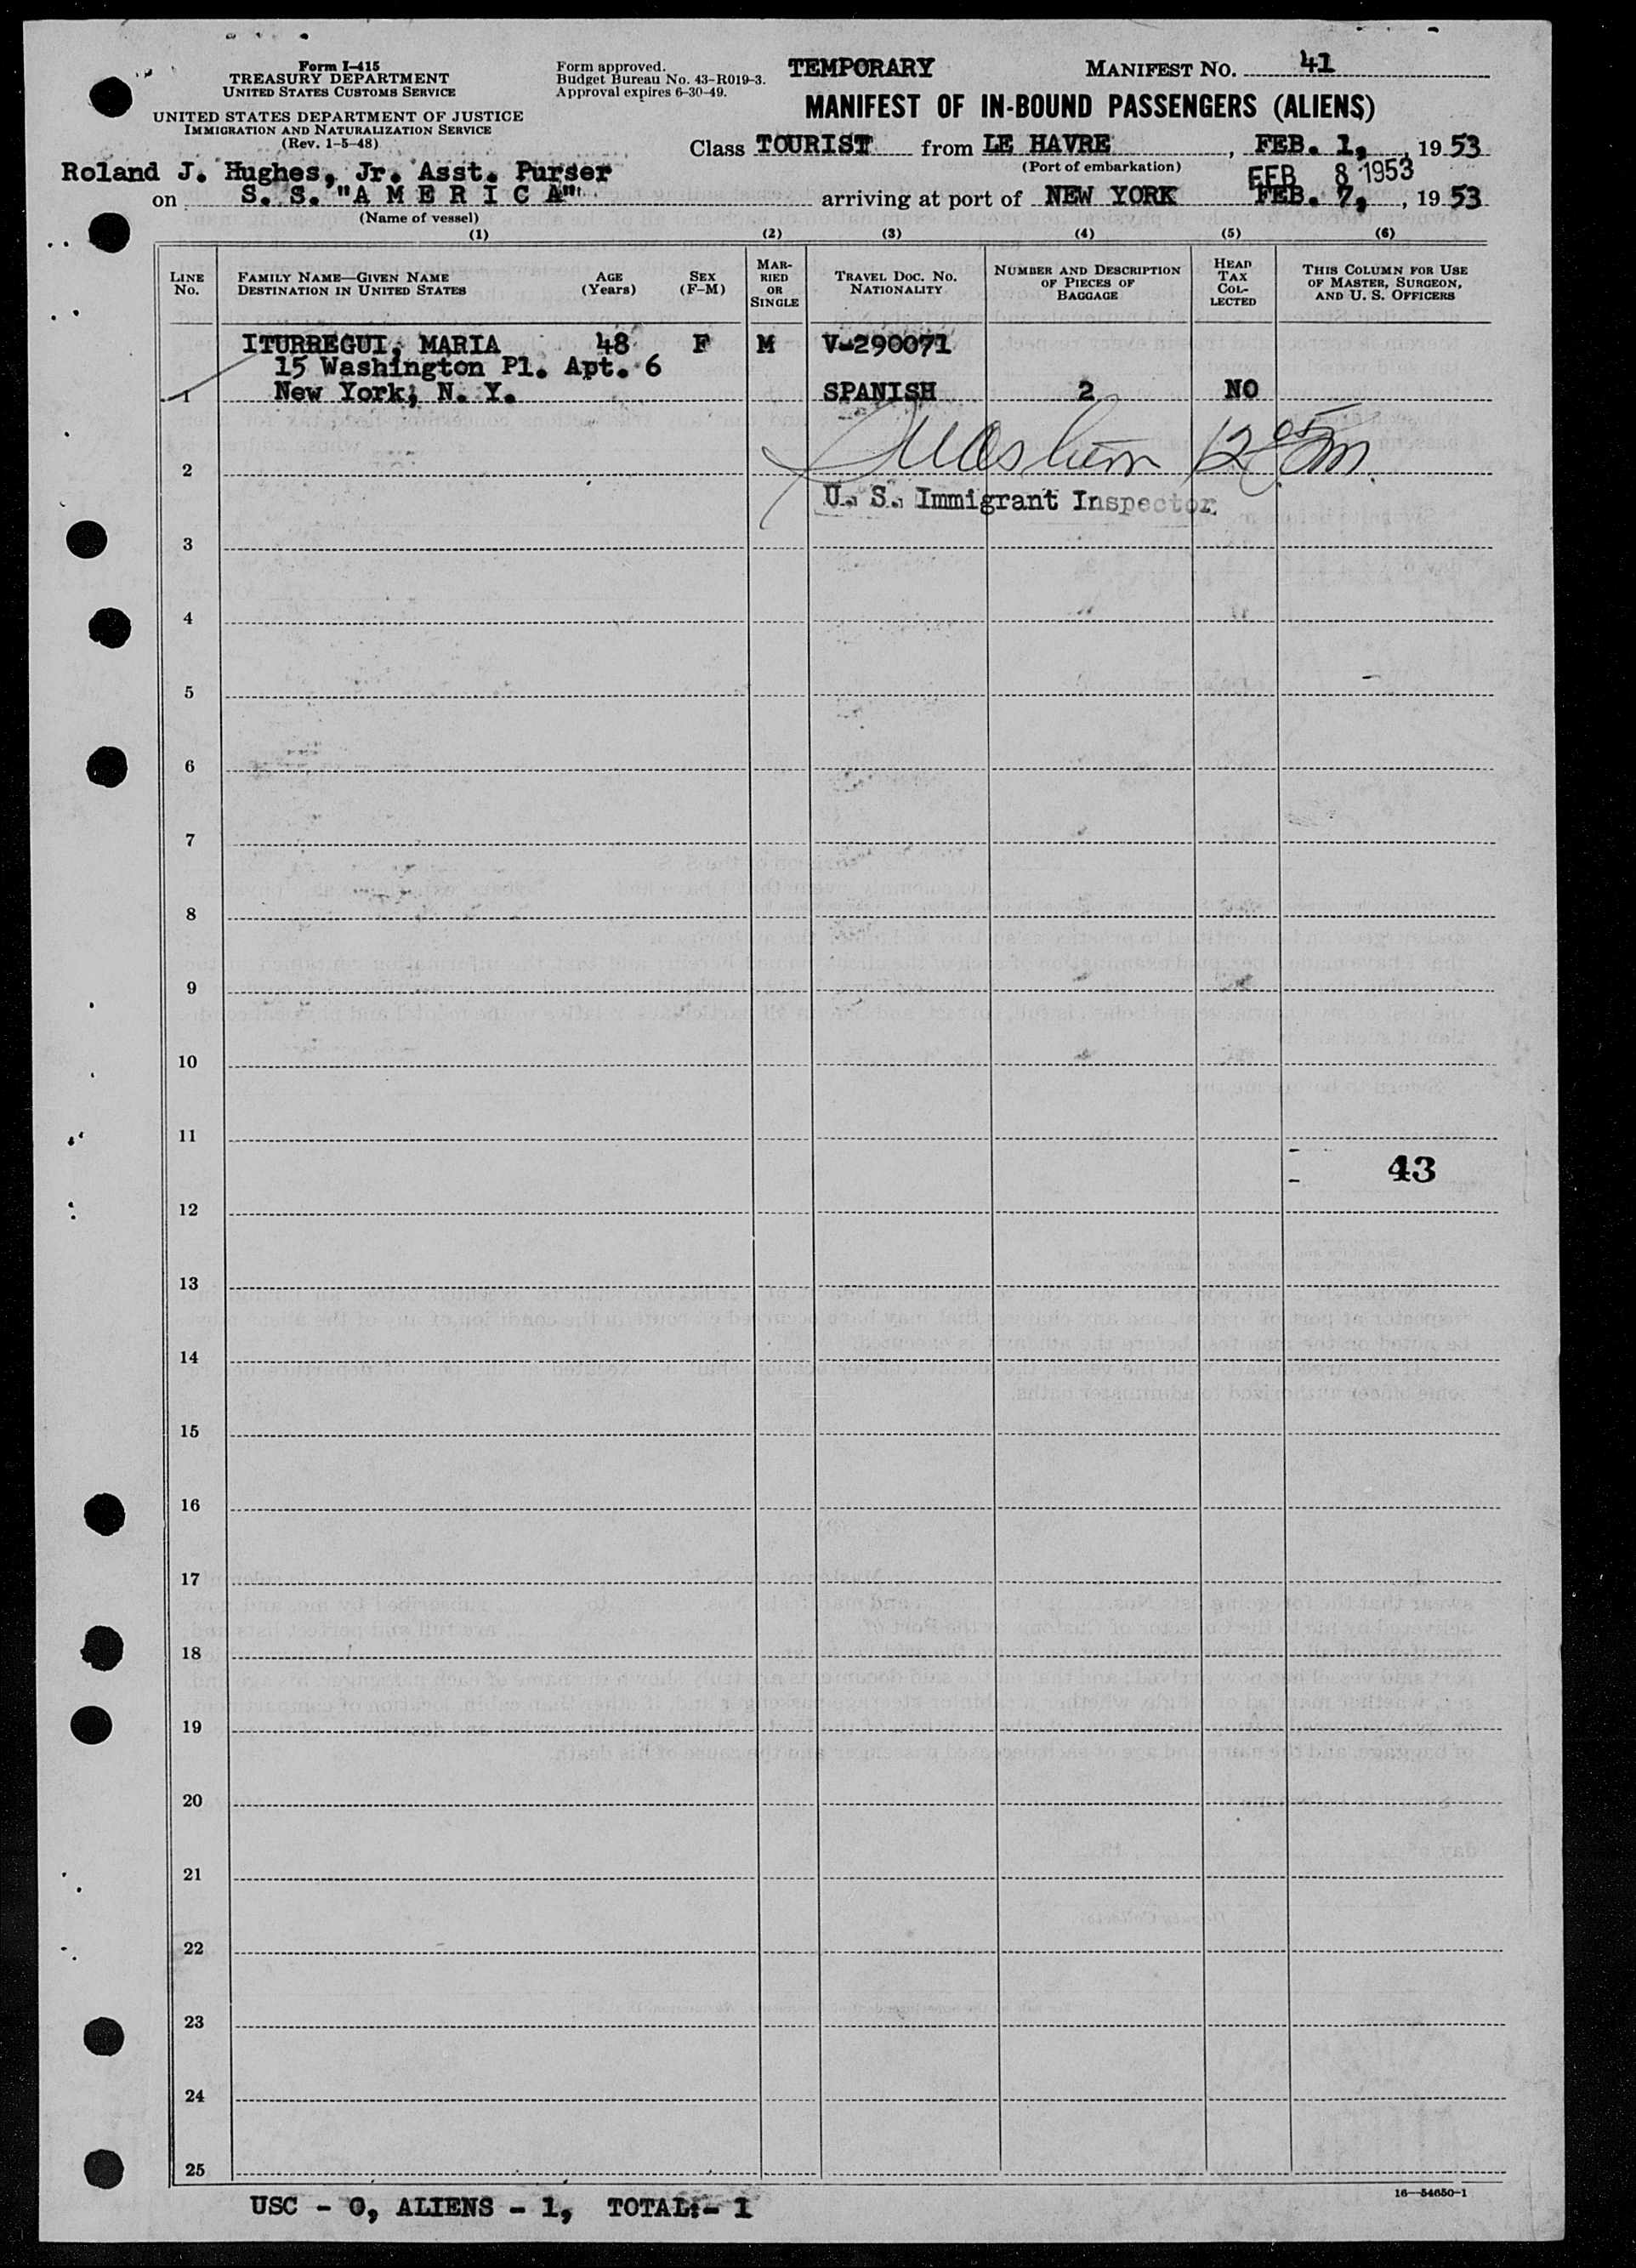 Form I-415
TREASURY DEPARTMENT
UNITED STATES CUSTOMS SERVICE
UNITED STATES DEPARTMENT OF JUSTICE
IMMIGRATION AND NATURALIZATION SERVICE
(Rev. 1-5-48)
Form approved.
Budget Bureau No. 43-R019-3.
Approval expires 6-30-49.
TEMPORARY
MANIFEST NO. 41
MANIFEST OF IN-BOUND PASSENGERS (ALIENS)
Class TOURIST from LE HAVRE, FEB. 1, 1953
(Port of embarkation)
Roland J. Hughes, Jr. Asst. Purser
FEB 8 1953
on S. S. "A M E R I C A" arriving at port of NEW YORK FEB. 7, 1953
(Name of vessel)
(1) (2) (3) (4) (5) (6)
LINE No.
FAMILY NAME—GIVEN NAME
DESTINATION IN UNITED STATES
AGE (Years)
SEX (F-M)
MARRIED OR SINGLE
TRAVEL DOC. NO.
NATIONALITY
NUMBER AND DESCRIPTION OF PIECES OF BAGGAGE
HEAD TAX COLLECTED
THIS COLUMN FOR USE OF MASTER, SURGEON, AND U. S. OFFICERS
ITURREGUI, MARIA 48 F M V-290071
15 Washington Pl. Apt. 6
1 New York, N. Y. SPANISH 2 NO
2
U. S. Immigrant Inspector
3
4
5
6
7
8
9
10
11
43
12
13
14
15
16
17
18
19
20
21
22
23
24
25
16—54650-1
USC - 0, ALIENS - 1, TOTAL:- 1